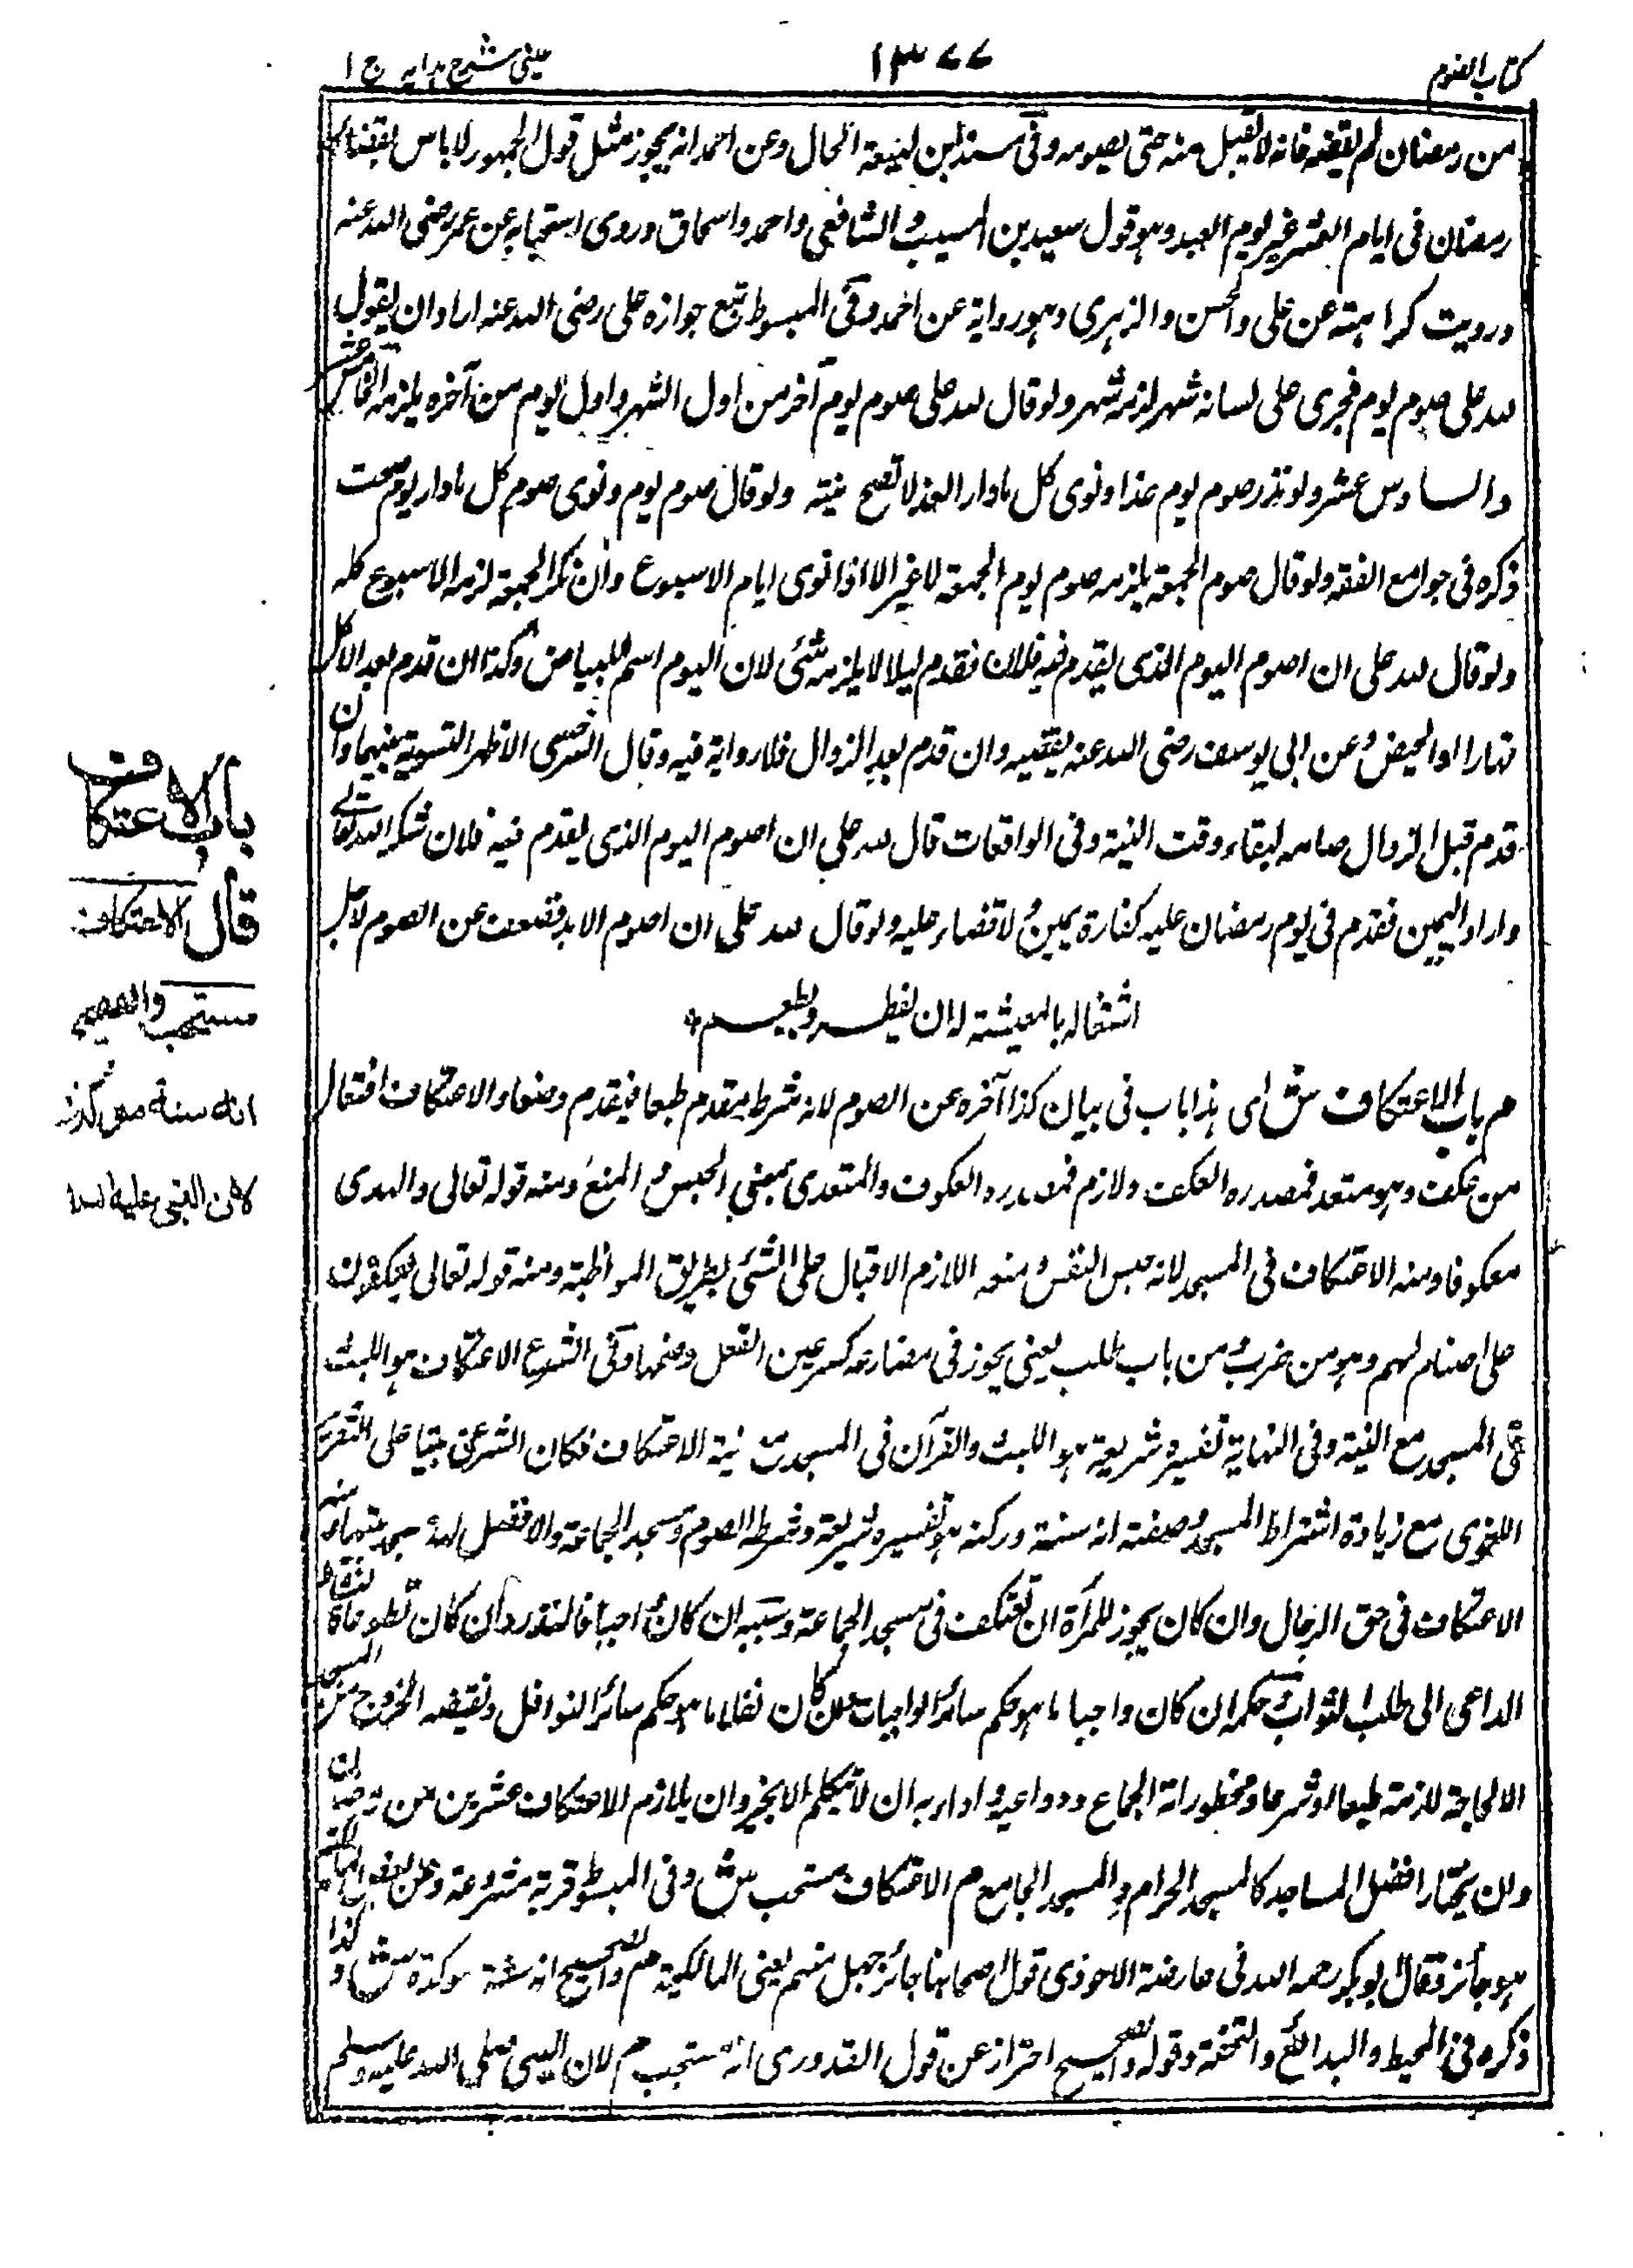 كتاب الصوم
١٣٧٧
عينى شرح هدايه ج ١
من رمضان لم يقضه فانه لا يقبل منه حتى يصومه وفى سنده ابن لهيعة الحال وعن احمد انه يجوز مثل قول الجمهور لا باس بقضاء
رمضان فى ايام العشر غير يوم العيد وهو قول سعيد بن المسيب والشافعى واحمد واسحاق وروى استحبابه عن عمر رضى الله عنه
ورويت كراهته عن على والحسن والزهرى وهو رواية عن احمد وفى المبسوط تبع جوازه على رضى الله عنه اراد ان يقول
لله على صوم يوم فجرى على لسانه شهر لزمه شهر ولو قال لله على صوم يوم آخر من اول الشهر واول يوم من آخره يلزمه الخامس عشر
والسادس عشر ولو نذر صوم يوم غدا ونوى كل ما دار الغد لا تصح نيته ولو قال صوم يوم ونوى صوم كل ما دار يوم صحت
ذكره فى جوامع الفقه ولو قال صوم الجمعة يلزمه صوم يوم الجمعة لا غير الا اذا نوى ايام الاسبوع وان نكر الجمعة لزمه الاسبوع كله
ولو قال لله على ان اصوم اليوم الذى يقدم فيه فلان فقدم ليلا لا يلزمه شئ لان اليوم اسم للبياض وكذا ان قدم بعد الاكل
نهارا او الحيض وعن ابى يوسف رضى الله عنه يقضيه وان قدم بعد الزوال فلا رواية فيه وقال السرخسى الاظهر التسوية بينهما وان
قدم قبل الزوال صامه لبقاء وقت النية وفى الواقعات قال لله على ان اصوم اليوم الذى يقدم فيه فلان شكرا لله تعالى
واراد اليمين فقدم فى يوم رمضان عليه كفارة يمين ولا قضاء عليه ولو قال لله على ان اصوم الابد فضعف عن الصوم لاجل
اشتغاله بالمعيشة له ان يفطر ويطعم
م باب الاعتكاف ش اى هذا باب فى بيان كذا آخره عن الصوم لانه شرط متقدم طبعا فيقدم وضعا والاعتكاف افتعال
من عكف وهو متعد فمصدره العكف ولازم فمصدره العكوف والمتعدى بمعنى الحبس والمنع ومنه قوله تعالى والهدى
معكوفا ومنه الاعتكاف فى المسجد لانه حبس النفس ومنعه اللازم الاقبال على الشئ بطريق المواظبة ومنه قوله تعالى يعكفون
على اصنام لهم وهو من ضرب ومن باب طلب يعنى يجوز فى مضارعه كسر عين الفعل وضمها وفى الشرع الاعتكاف هو اللبث
فى المسجد مع النية وفى النهاية تفسيره شريعة هو اللبث والقرآن فى المسجد مع نية الاعتكاف فكان الشرعى مبنيا على التفسير
اللغوى مع زيادة اشتراط المسجد وصفته انه سنة وركنه هو تفسيره شريعة وشرطه الصوم ومسجد الجماعة والافضل لها مسجد بيتها ومنه
الاعتكاف فى حق الرجال وان كان يجوز للمرأة ان تعتكف فى مسجد الجماعة وسببه ان كان واجبا فالنذر وان كان تطوعا فالنشاط
الداعى الى طلب الثواب وحكمه ان كان واجبا ما هو حكم سائر الواجبات وان كان نفلا ما هو حكم سائر النوافل ونقيضه الخروج من المسجد
الا لحاجة لازمة طبعا او شرعا ومحظوراته الجماع ودواعيه وادابه ان لا يتكلم الا بخير وان يلازم الاعتكاف عشرين من رمضان
وان يختار افضل المساجد كالمسجد الحرام والمسجد الجامع م الاعتكاف مستحب ش وفى المبسوط قربة مشروعة وعن بعض المالكية
هو جائز وقال ابو بكر رحمه الله فى عارضة الاحوذى قول اصحابنا جائز جهل منهم يعنى المالكية م والصحيح انه سنة موكدة ش وكذا
ذكره فى المحيط والبدائع والتحفة وقوله والصحيح احتراز عن قول القدورى انه مستحب م لان النبى صلى الله عليه وسلم
باب الاعتكاف
قال الاعتكاف
مستحب والصحيح
انه سنة موكدة
لان النبى عليه السلام